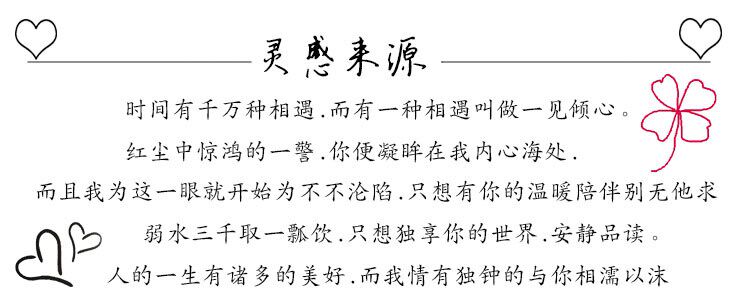 灵感来源
时间有千万种相遇.而有一种相遇叫做一见倾心。
红尘中惊鸿的一警.你便凝眸在我内心海处.
而且我为这一眼就开始为不不沦陷.只想有你的温暖陪伴别无他求
弱水三千取一瓢饮.只想独享你的世界.安静品读。
人的一生有诸多的美好.而我情有独钟的与你相濡以沫